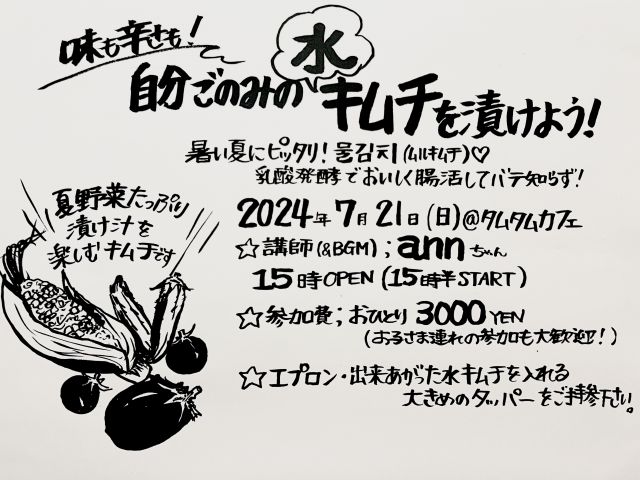 味も辛さも!
自分ごのみの水キムチを漬けよう!
暑い夏にピッタリ!물김치(ムルキムチ)♡
乳酸発酵でおいしく腸活してバテ知らず!
夏野菜たっぷり
漬け汁を
楽しむキムチです
2024年7月21日(日)@タムタムカフェ
☆講師(&BGM);annちゃん
15時OPEN(15時半START)
☆参加費;おひとり3000YEN
(おこさま連れの参加も大歓迎!)
☆エプロン・出来あがった水キムチを入れる
大きめのタッパーをご持参下さい!